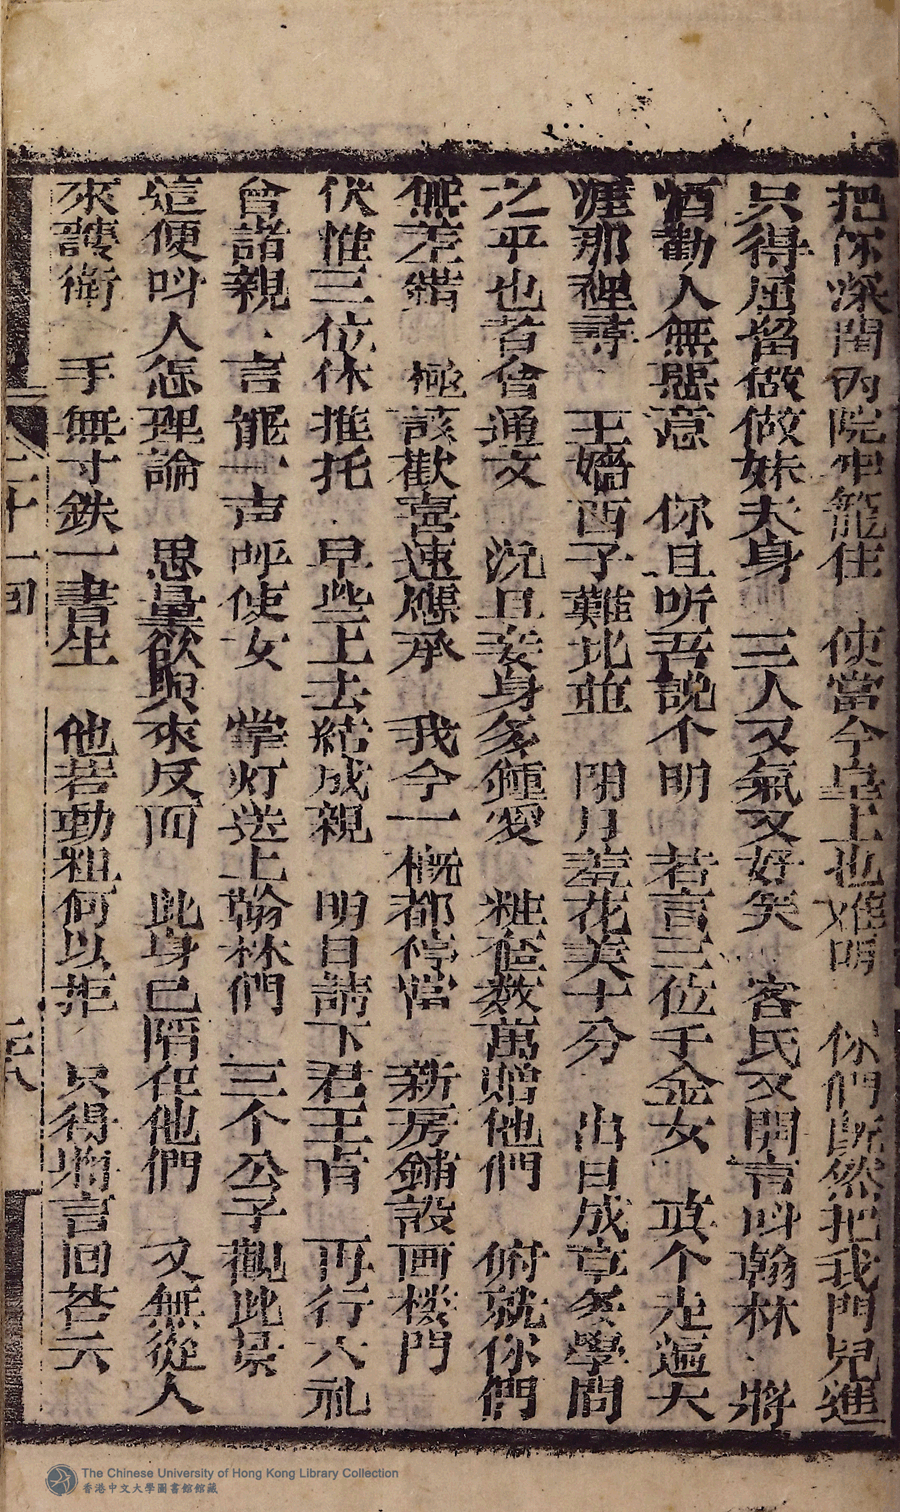 把你深閨內院牢籠住　使當今皇上也难明　你們既然把我門兒進
只得屈留做做妹夫身　三人又氣又好笑　客氏又開言叫翰林　將
酒勸人無惡意　你且听吾說个明　若言三位千金女　真个走遍天
涯那裡尋　王嬙西子難比並　閉月羞花美十分　出口成章多學問
之乎也者會通文　況且妾身多鍾愛　粧奩数萬贈他們　俯就你們
無差錯　極該歡喜速應承　我今一概都停當　新房鋪設画楼門
伏惟三位休推托　早些上去結成親　明日請下君王旨　再行大礼
會諸親　言罷一声呼使女　掌灯送上翰林們　三个公子觀此景
這便叫人怎理論　思量欲與來反面　此身已陷在他們　又無從人
來護衛　手無寸鉄一書生　他若動粗何以拒　只得將言回荅云
二十一回
The Chinese University of Hong Kong Library Collection
香港中文大學圖書館館藏